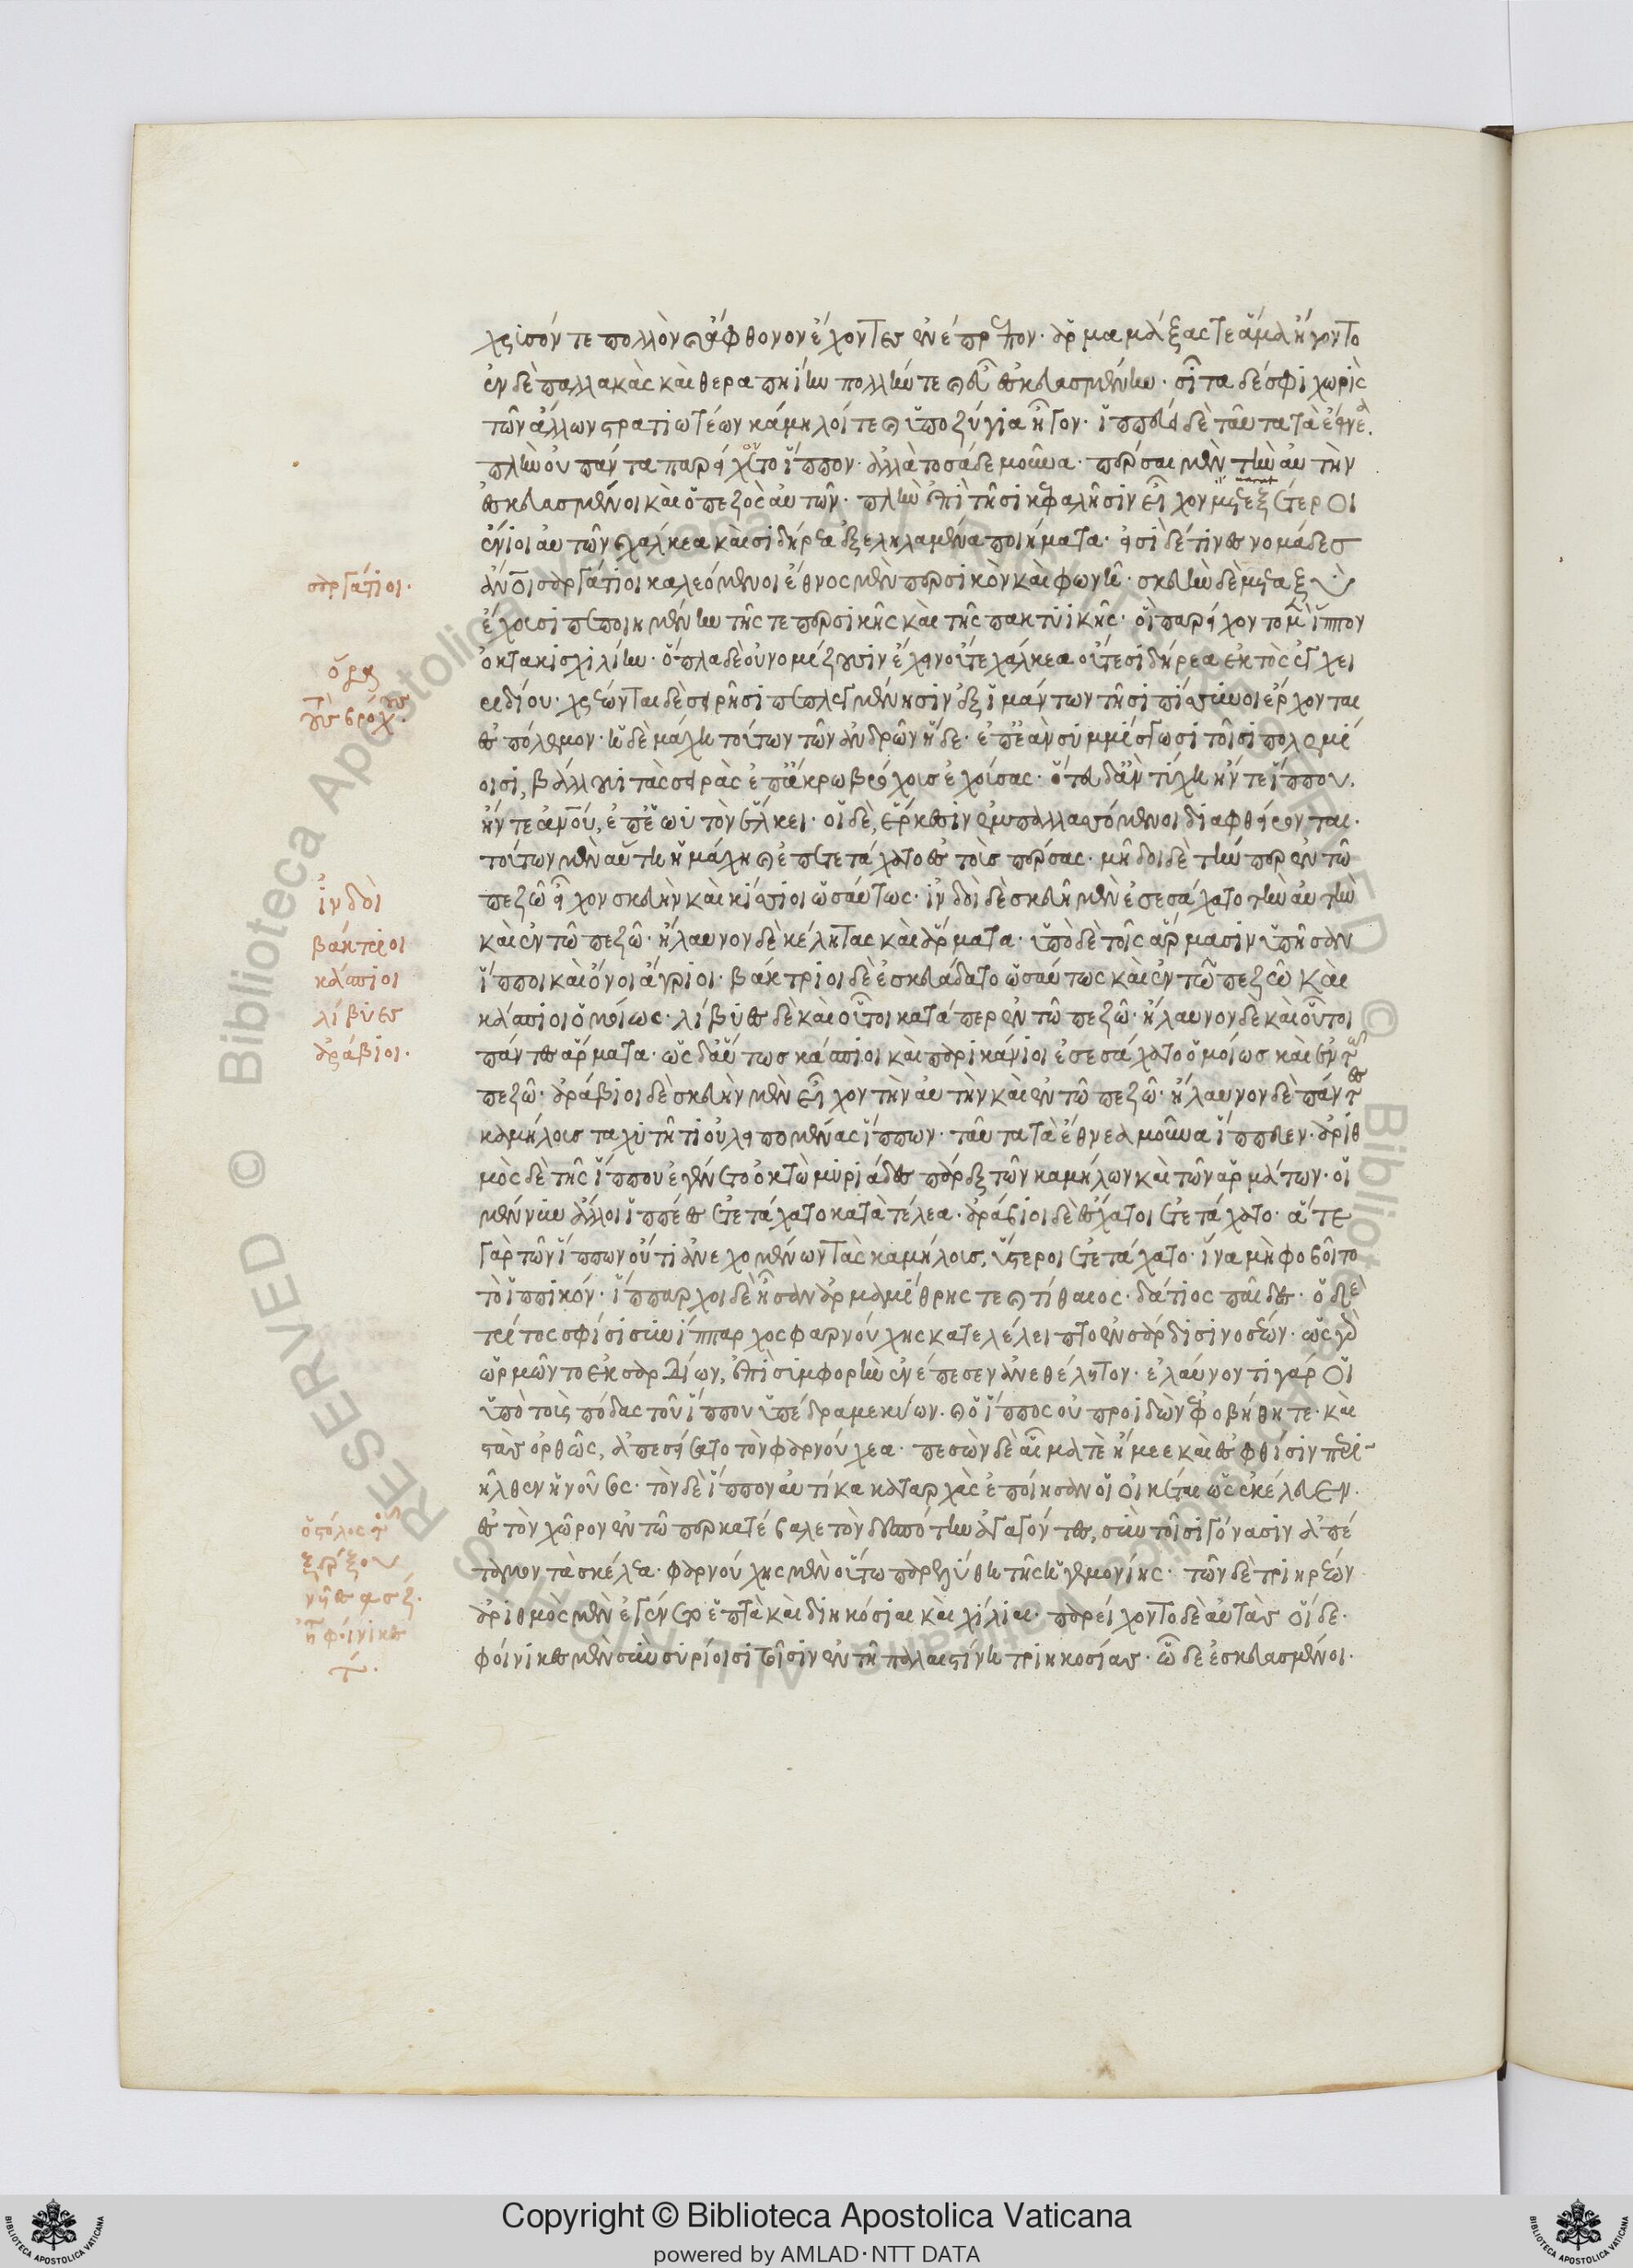 χρυσόν τε πολλὸν καὶ ἄφθονον ἔχοντες ἐνέπρεπον· ἁρμαμάξας τε ἅμα ἤγοντο
ἐν δὲ παλλακὰς καὶ θεραπηίην πολλήν τε καὶ εὖ ἐσκευασμένην· σῖτα δέ σφι χωρὶς
τῶν ἄλλων στρατιωτέων κάμηλοί τε καὶ ὑποζύγια ἦγον· ἱππεύει δὲ ταῦτα τὰ ἔθνεα
πλὴν οὐ πάντα παρείχετο ἵππον· ἀλλὰ τοσάδε μοῦνα· πέρσαι μὲν τὴν αὐτὴν
ἐσκευασμένοι καὶ ὁ πεζὸς αὐτῶν· πλὴν ἐπὶ τῇσι κεφαλῇσιν εἶχον μετεξέτεροι
ἔνιοι αὐτῶν χάλκεα καὶ σιδήρεα ἐξεληλαμένα ποιήματα· εἰσὶ δέ τινες νομάδες
σαργάτιοι·
ἄνθρωποι σαργάτιοι καλεόμενοι ἔθνος μὲν περσικὸν καὶ φωνῇ· σκευὴν δὲ μεταξὺ
ἔχουσι πεποιημένην τῆς τε περσικῆς καὶ τῆς πακτυικῆς· οἳ παρείχοντο μὲν ἵππον
ὀκτακισχιλίην· ὅπλα δὲ οὐ νομίζουσιν ἔχειν οὔτε χάλκεα οὔτε σιδήρεα ἐκτὸς ἐγχει
ριδίου· χρέωνται δὲ σειρῇσι πεπλεγμένῃσιν ἐξ ἱμάντων τῇσι πίσυνοι ἔρχονται
ἐς πόλεμον· ἡ δὲ μάχη τούτων τῶν ἀνδρῶν ἥδε· ἐπεὰν συμμίσγωσι τοῖσι πολεμί
οισι, βάλλουσι τὰς σειρὰς ἐπ' ἄκρῳ βρόχους ἐχούσας· ὅτευ δ' ἂν τύχῃ ἤν τε ἵππου,
ἤν τε ἀνθρώπου, ἐπ' ἑωυτὸν ἕλκει· οἱ δὲ, ἐν ἕρκεσιν ἐμπαλασσόμενοι διαφθείρονται·
τούτων μὲν αὕτη ἡ μάχη καὶ ἐπετετάχατο ἐς τοὺς πέρσας· μῆδοι δὲ τήν περ ἐν τῷ
πεζῷ εἶχον σκευὴν καὶ κίσσιοι ὡσαύτως· ἰνδοὶ δὲ σκευῇ μὲν ἐσεσάχατο τὴν αὐτὴν
ἰνδοὶ
καὶ ἐν τῷ πεζῷ· ἤλαυνον δὲ κέλητας καὶ ἅρματα· ὑπὸ δὲ τοῖς ἅρμασιν ὑπῆσαν
βάκτριοι
ἵπποι καὶ ὄνοι ἄγριοι· βάκτριοι δὲ ἐσκευάδατο ὡσαύτως καὶ ἐν τῷ πεζῷ καὶ
κάσπιοι
κάσπιοι ὁμοίως· λίβυες δὲ καὶ οὗτοι κατάπερ ἐν τῷ πεζῷ· ἤλαυνον δὲ καὶ οὗτοι
λίβυες
πάντες ἅρματα· ὣς δ' αὔτως κάσπιοι καὶ παρικάνιοι ἐσεσάχατο ὁμοίως καὶ ἐν τῷ
ἀράβιοι·
πεζῷ· ἀράβιοι δὲ σκευὴν μὲν εἶχον τὴν αὐτὴν καὶ ἐν τῷ πεζῷ· ἤλαυνον δὲ πάντες
καμήλους ταχυτῆτι οὐ λειπομένας ἵππων· ταῦτα τὰ ἔθνεα μοῦνα ἱππεύει· ἀριθ
μὸς δὲ τῆς ἵππου ἐγένετο ὀκτὼ μυριάδες πάρεξ τῶν καμήλων καὶ τῶν ἁρμάτων· οἱ
μέν νυν ἄλλοι ἱππέες ἐτετάχατο κατὰ τέλεα· ἀράβιοι δὲ ἔσχατοι ἐτετάχατο· ἅτε
γὰρ τῶν ἵππων οὔτι ἀνεχομένων τὰς καμήλους, ὕστεροι ἐτετάχατο· ἵνα μὴ φοβοῖτο
τὸ ἱππικόν· ἵππαρχοι δὲ ἦσαν ἁρμαμίθρης τε καὶ τίθαιος· δάτιος παῖδες· ὁ δὲ
τρίτος σφίσι συνίππαρχος φαρνούχης κατελέλειπτο ἐν σάρδισι νοσέων· ὡς γὰρ
ὡρμῶντο ἐκ σαρδίων, ἐπὶ συμφορὴν ἐνέπεσεν ἀνεθέλητον· ἐλαύνοντι γάρ οἱ
ὑπὸ τοὺς πόδας τοῦ ἵππου ὑπέδραμε κύων· καὶ ὁ ἵππος οὐ προϊδὼν ἐφοβήθη τε· καὶ
στὰς ὀρθῶς, ἀπεσείσατο τὸν φαρνούχεα· πεσὼν δὲ αἷμά τε ἤμεε καὶ ἐς φθίσιν περι
ῆλθεν ἡ νοῦσος· τὸν δὲ ἵππον αὐτίκα κατ' ἀρχὰς ἐποίησαν οἱ οἰκέται ὡς ἐκέλευεν·
ἐς τὸν χῶρον ἐν τῷ περ κατέβαλε τὸν δεσπότην ἀγαγόντες, ἐν τοῖσι γόνασιν ἀπέ
ταμον τὰ σκέλεα· φαρνούχης μὲν οὕτω παρελύθη τῆς ἡγεμονίης· τῶν δὲ τριηρέων
ἀριθμὸς μὲν ἐγένετο ἑπτὰ καὶ διηκόσιαι καὶ χίλιαι· παρείχοντο δὲ αὐτὰς οἵδε·
φοίνικες μὲν σὺν συρίοισι τοῖσιν ἐν τῇ παλαιστίνῃ τριηκοσίας· ὧδε ἐσκευασμένοι·